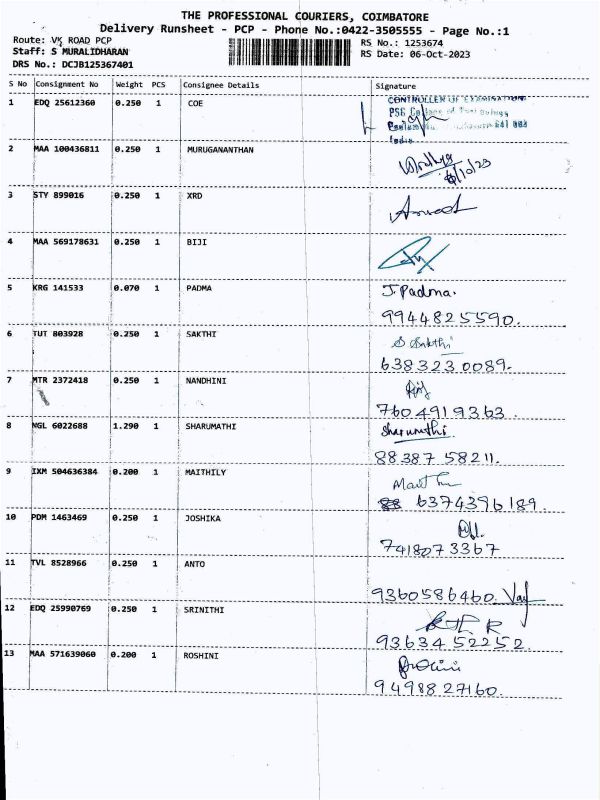 THE PROFESSIONAL COURIERS, COIMBATORE
Delivery Runsheet - PCP - Phone No.:0422-3505555 - Page No.:1
Route: VK ROAD PCP
RS No.: 1253674
Staff: S MURALIDHARAN
RS Date: 06-Oct-2023
DRS No.: DCJB125367401
S No Consignment No Weight PCS Consignee Details Signature
1 EDQ 25612360 0.250 1 COE
CONTROLLER OF EXAMINATIONS
PSG College of Technology
641 004
India
2 MAA 100436811 0.250 1 MURUGANANTHAN
6/10/23
3 STY 899016 0.250 1 XRD
4 MAA 569178631 0.250 1 BIJI
5 KRG 141533 0.070 1 PADMA J. Padma.
9944825590.
6 TUT 803928 0.250 1 SAKTHI S Sakthi
6383230089.
7 MTR 2372418 0.250 1 NANDHINI
7604919363.
8 NGL 6022688 1.290 1 SHARUMATHI Sharumathi.
88387 58211.
9 IXM 504636384 0.200 1 MAITHILY
6374396189.
10 PDM 1463469 0.250 1 JOSHIKA
7418073367
11 TVL 8528966 0.250 1 ANTO
9360586460.
12 EDQ 25990769 0.250 1 SRINITHI
93634 52252.
13 MAA 571639060 0.200 1 ROSHINI
94988 27160.